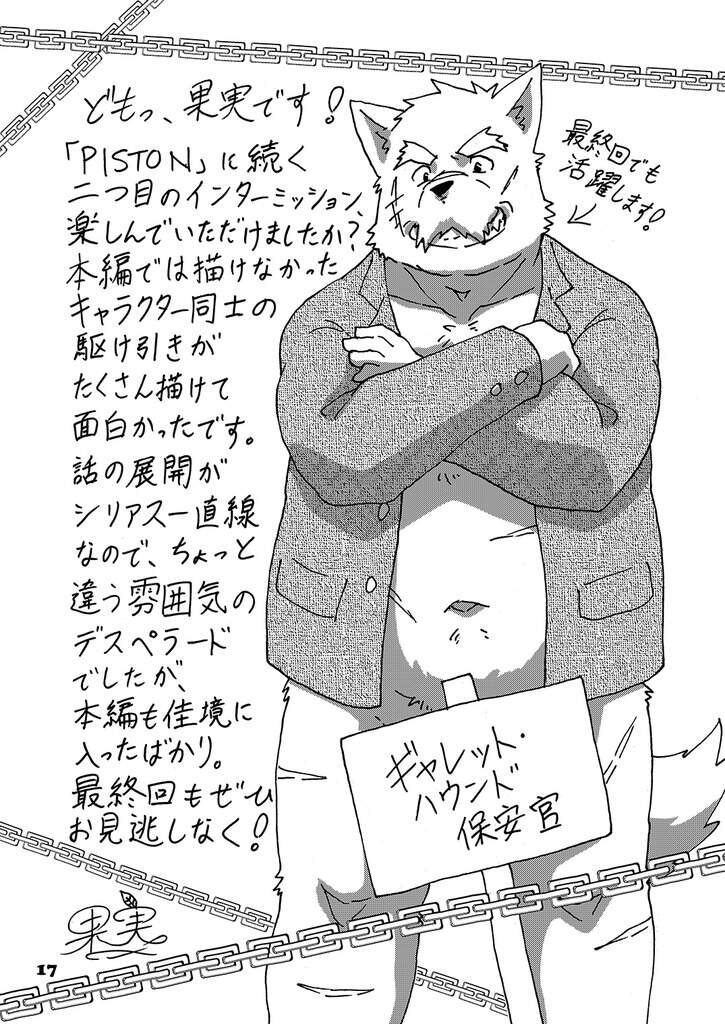 どもっ、果実です!
「PISTON」に続く
二つ目のインターミッション、
楽しんでいただけましたか?
本編では描けなかった
キャラクター同士の
駆け引きが
たくさん描けて
面白かったです。
話の展開が
シリアス一直線
なので、ちょっと
違う雰囲気の
デスペラード
でしたが、
本編も佳境に
入ったばかり。
最終回もぜひ
お見逃しなく!
最終回でも
活躍します!
ギャレット・
ハウンド
保安官
果実
17